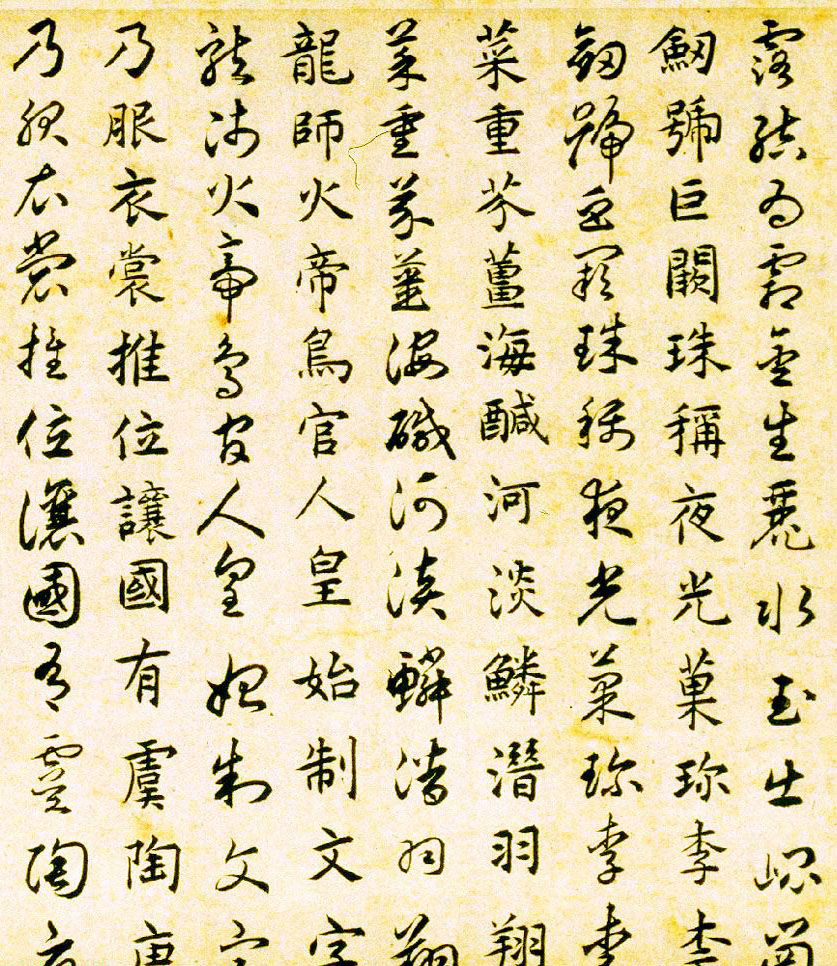 露結為霜金生麗水玉出崐崗
劔號巨闕珠稱夜光菓珎李柰
劔號巨闕珠稱夜光菓珎李柰
菜重芥薑海醎河淡鱗潛羽翔
菜重芥薑海醎河淡鱗潛羽翔
龍師火帝鳥官人皇始制文字
龍師火帝鳥官人皇始制文字
乃服衣裳推位讓國有虞陶唐
乃服衣裳推位讓國有虞陶唐